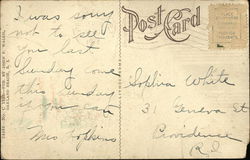 Post Card
I was sorry
not to see
you last
Sunday come
this Sunday
if you can
Mrs Hopkins
Sophia White
31 Geneva St
Providence
R.I.